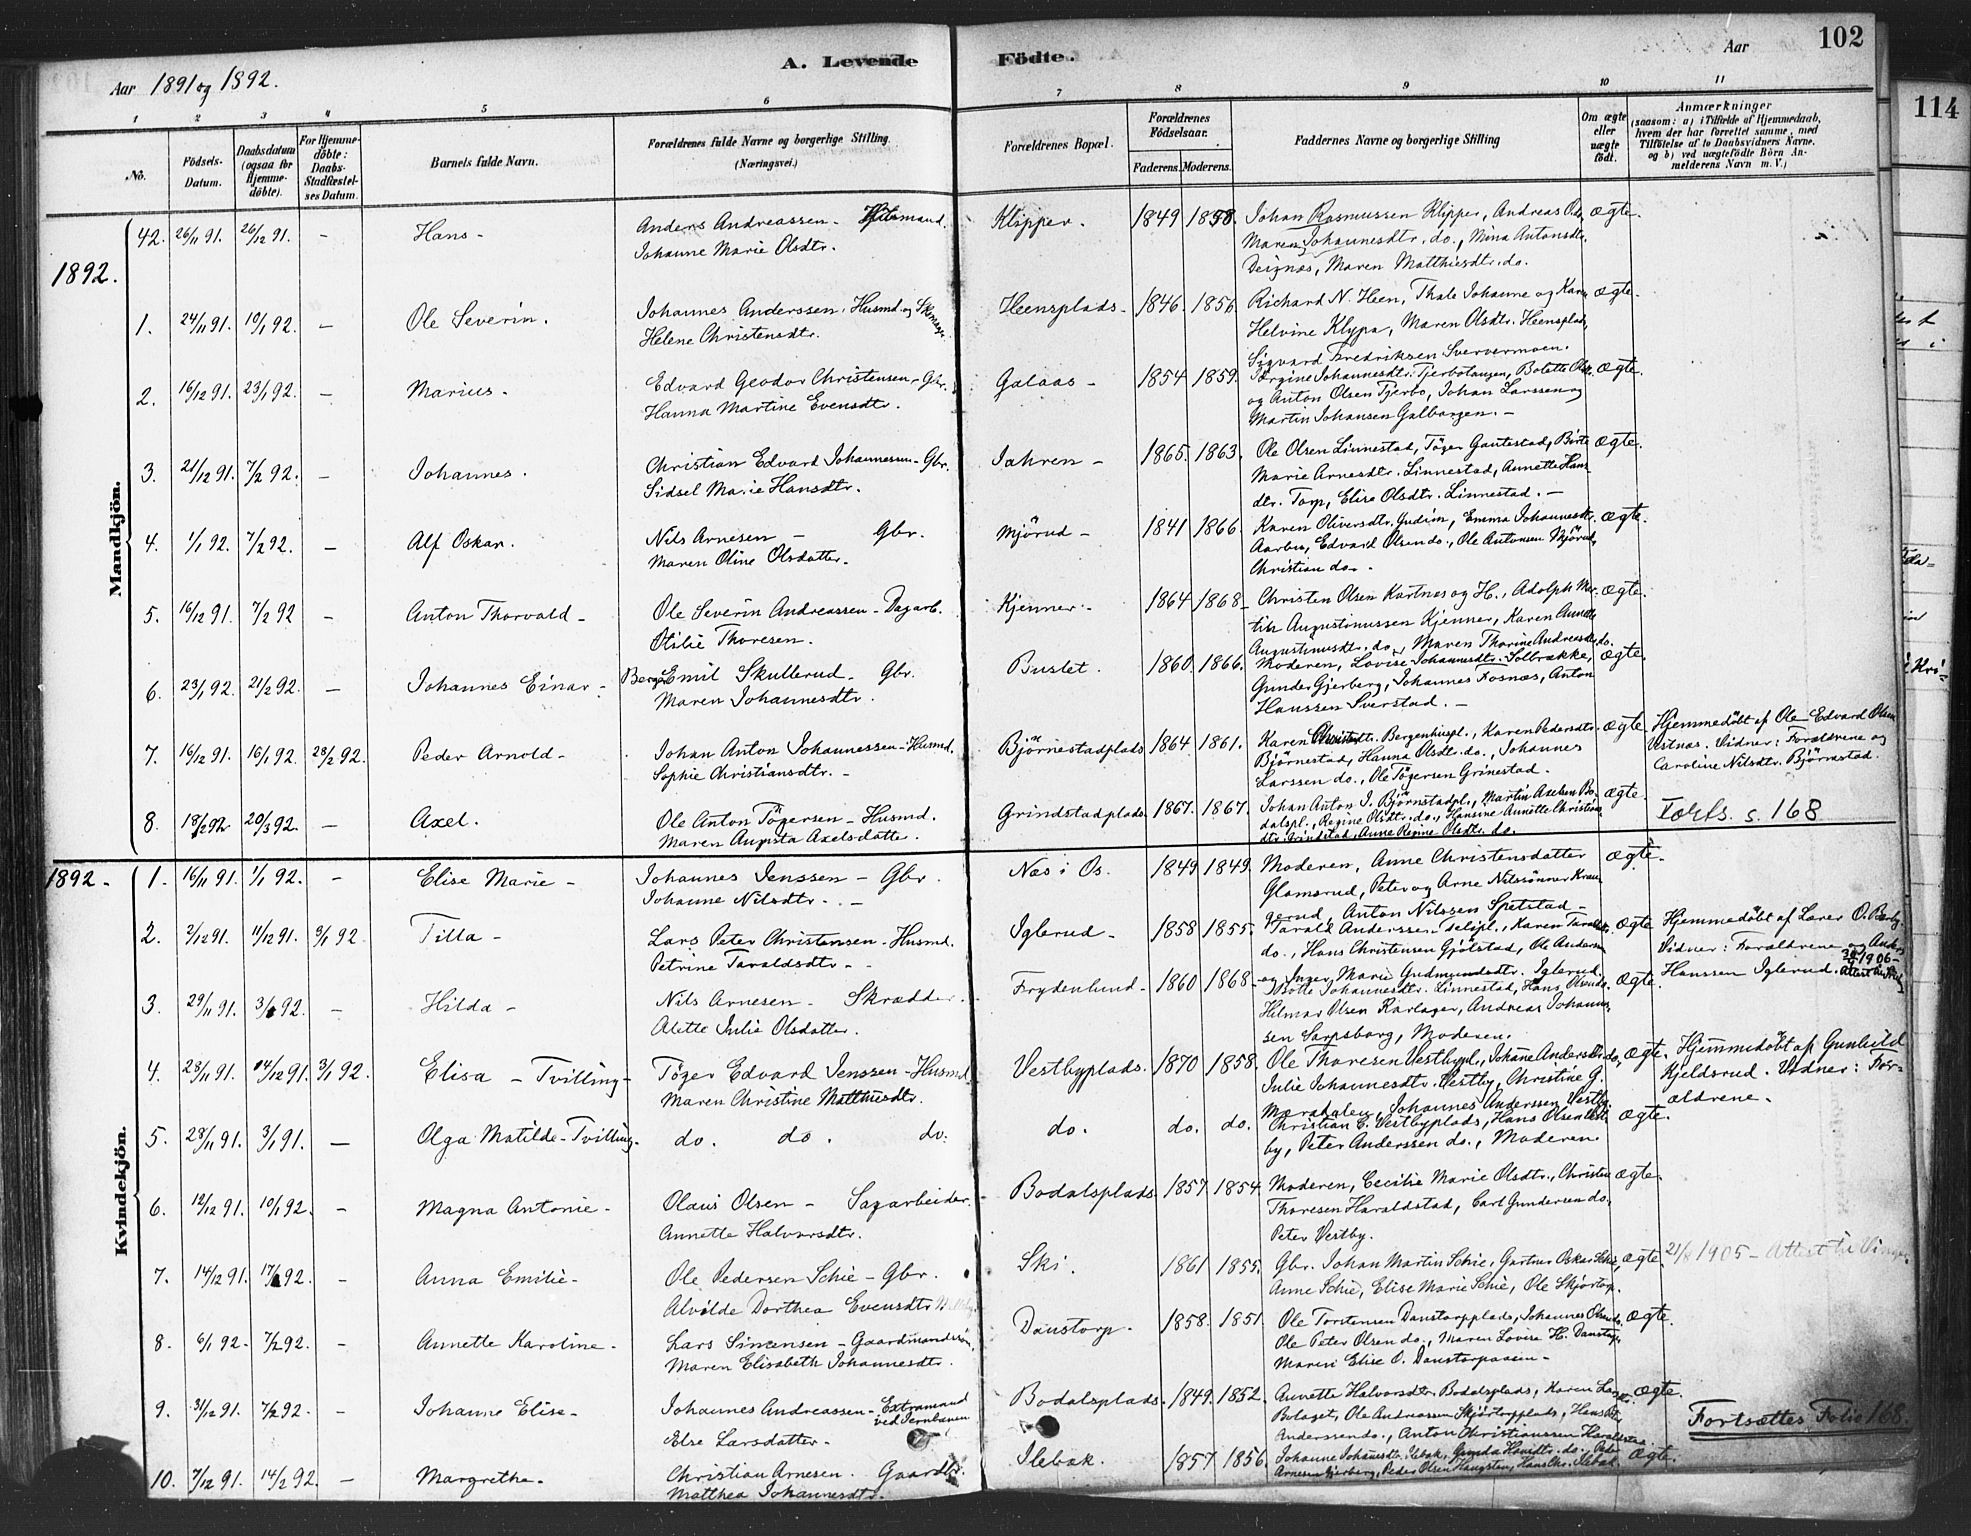 102
114
A. Levende Födte.
Aar 1891 og 1892.
Aar
1 2 3 4 5 6 7 8 9 10 11
No.
Födsels-Datum.
Daabsdatum (ogsaa for Hjemmedöbte).
For Hjemmedöbte: Daabs-Stadfæstelses Datum.
Barnets fulde Navn.
Forældrenes fulde Navne og borgerlige Stilling (Næringsvei.)
Forældrenes Bopæl.
Forældrenes Födselsaar.
Faderens. Moderens.
Faddernes Navne og borgerlige Stilling
Om ægte eller uægte födt.
Anmærkninger
(saasom: a) i Tilfælde af Hjemmedaab, hvem der har forrettet samme, med Tilföielse af to Daabsvidners Navne, og b) ved uægtefödte Börn Anmelderens Navn m. V.)
Mandkjön.
42. 26/11 91. 26/12 91. - Hans - Anders Andreassen - Husmand. Klipper. 1849 1858. Johan Rasmussen Klipper, Andreas do, ægte.
Johanne Marie Olsdtr. Maren Johannesdtr. do., Mina Antonsdtr.
Deignæs, Maren Matthiesdtr. do.
1892.
1. 24/11 91. 10/1 92. - Ole Severin. Johannes Anderssen, Husmd. og Skomager Heensplads - 1846. 1856. Richard N. Heen, Thale Johanne og Karen ægte.
Helene Christensdtr. Helvine Klypa, Maren Olsdtr. Heensplads,
Sigvard Fredriksen Sververmoen.
2. 16/12 91. 23/1 92. - Marius. Edvard Geodor Christensen - Gbr. Galaas - 1854. 1859. Jørgine Johannesdtr. Tjerbotangen, Bolette Olsdtr. ægte.
Hanna Martine Evensdtr. og Anton Olsen Tjerbo, Johan Larssen og
Martin Johansen Galbergen. -
3. 21/12 91. 7/2 92. - Johannes. Christian Edvard Johannessen - Gbr. Jahren - 1865. 1863. Ole Olsen Linnestad, Töger Gautestad, Birte ægte.
Sidsel Marie Hansdtr. Marie Arnesdtr. Linnestad, Annette Hans
dtr. Torp, Elise Olsdtr. Linnestad. -
4. 1/1 92. 7/2 92. - Alf Oskar. Nils Arnesen - Gbr. Mjörud - 1841 1866. Karen Oliversdtr. Gudim, Emma Johannesdtr. ægte.
Maren Oline Olsdatter. Aarbu, Edvard Olsen do., Ole Antonsen Mjörud,
Christian do.
5. 16/12 91. 7/2 92 - Anton Thorvald - Ole Severin Andreassen - Dagarb. Kjenner - 1864 1868 - Christen Olsen Kartnæs og H., Adolph Mar ægte.
Otilie Thoresen. tin Augustinussen Kjenner, Karen Annette
Augustinusdtr. do., Maren Thorine Andreasdtr. do.
6. 23/1 92. 21/2 92. - Johannes Einar - Berger Emil Skullerud - Gbr. Buslet. 1860. 1866. Moderen, Lovise Johannesdtr. Solbrække, ægte.
Maren Johannesdtr. Gunder Gjerberg, Johannes Fosnæs, Anton
Hanssen Sverstad. -
7. 16/12 91. 16/1 92. 28/2 92. Peder Arnold - Johan Anton Johannessen - Husmd. Björnestadplads 1864 1861. Karen Christensdtr. Bergenhuspl., Karen Pedersdtr. ægte. Hjemmedöbt af Ole Edvard Olsen
Sophie Christiansdtr. - Björnestad, Hanna Olsdtr. do., Johannes Vestnæs. Vidner: Forældrene og
Larssen do., Ole Tögersen Grinestad. Caroline Nilsdtr. Björnestad.
8. 18/2 92. 20/3 92. - Axel. Ole Anton Tögersen - Husmd. Grindstadplads. 1867. 1867. Johan Anton J. Björnstadpl., Martin Axelsen Bo- ægte. Forts. s. 168
Maren Augusta Axelsdatter. dalspl., Regine Olsdtr. do., Hansine Annette Christians
dtr. Grindstad, Anne Regine Olsdtr. do.
Kvindekjön.
1892. 1. 16/11 91. 1/1 92. - Elise Marie - Johannes Jenssen - Gbr. Næs i Os. 1849 1849. Moderen, Anne Christensdatter ægte.
Johanne Nilsdtr. - Glomsrud, Peter og Arne Nilssönner Kraa-
gerud, Anton Nilssen Spetstad -
2. 2/12 91. 11/12 91. 3/1 92. Tilla - Lars Peter Christensen - Husmd. Iglerud - 1858 1855. Tarald Anderssen Teigpl., Karen Taraldsdtr. ægte Hjemmedöbt af Lærer O. Barby.
Petrine Taraldsdtr - do., Hans Christensen Gjölstad, Ole Andersen Vidner: Forældrene og Anders
og Inger Marie Gudmundsdtr. Iglerud. Hanssen Iglerud.
3. 29/11 91. 3/1 92. - Hilda - Nils Arnesen - Skrædder. Frydenlund - 1860 1868 - Lisotte Johannesdtr. Linnestad, Hans Olsen do. ægte. 1906 - Attest
Alette Julie Olsdatter. Hilmar Olsen Karlager, Andreas Johannes-
sen Sarpsborg, Moderen.
4. 28/11 91. 14/12 91. 3/1 92. Elisa - Tvilling - Töger Edvard Jenssen - Husmd. Vestbyplads. 1870 1858. Ole Thoresen Vestbypl., Johanne Andersdtr. do, ægte. Hjemmedöbt af Gunhild
Maren Christine Matthiesdtr. Julie Johannesdtr. Vestby, Christine G. Kjeldsrud. Vidner: For-
Moradalen, Johannes Anderssen Vestby. ældrene.
5. 28/11 91. 3/1 91. - Olga Matilde - Tvilling. do. do. do. do. do. do. Christian C. Vestbyplads, Hans Olsen Vest ægte.
by, Peter Anderssen do., Moderen.
6. 12/12 91. 10/1 92. - Magna Antonie - Olaus Olsen - Sagarbeider. Bodalsplads. 1857. 1854. Moderen, Cecilie Marie Olsdtr., Christen ægte.
Annette Halvorsdtr. Thoresen Haraldstad, Carl Gundersen do.,
Peter Vestby.
7. 14/12 91. 17/1 92. - Anna Emilie - Ole Pedersen Schie - Gbr. Ski. 1861 1855. Gbr. Johan Martin Schie, Gartner Oskar Schie, ægte. 1905 - Attest til
Alvilde Dorthea Evensdtr Anne Schie, Elise Marie Schie, Ole Skjörtorp.
8. 6/1 92 - 7/2 92. - Annette Karoline - Lars Simensen - Gaardmandssön Danstorp. 1858. 1851. Ole Torstensen Danstorpplads, Johannes Olsen do. ægte.
Maren Elisabeth Johannesdtr. Ole Peter Olsen do., Maren Lovise H. Danstorp,
Maren Elise O. Danstorpaasen -
9. 31/12 91. 7/2 92. - Johanne Elise - Johannes Andreassen - Extramand ved Jernbanen Bodalsplads. 1849. 1852. Annette Halvorsdtr. Bodalsplads, Karen Larsdtr. ægte.
Else Larsdatter - Bolaget, Ole Andreassen Skjörtorpplads, Hans
Anderssen do., Anton Christianssen Haraldstad.
Fortsættes Folio 168.
10. 7/12 91. 14/2 92. - Margrethe - Christian Arnesen. Gaardbr. Ilebæk. 1857. 1856. Johanne Johannesdtr. Ilebæk, Gunda Hansdtr. do., Peder ægte.
Matthea Johannesdtr. Arnesen Gjerberg, Peder Olsen Haugsten, Hans Chr. Ilebæk.